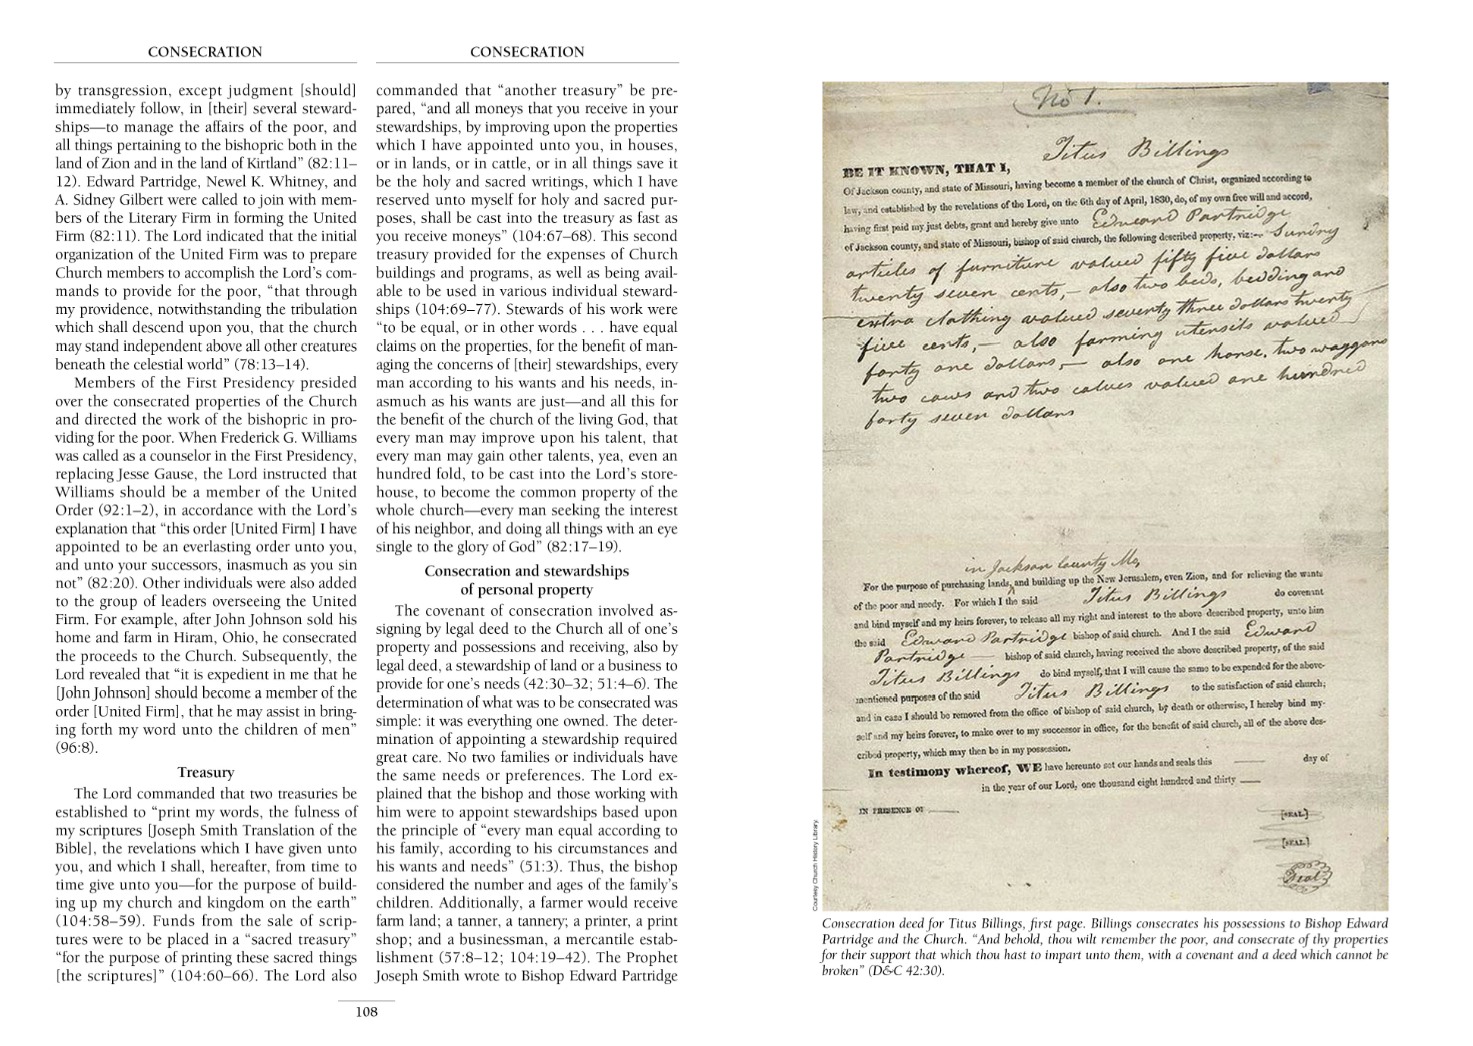 CONSECRATION
by transgression, except judgment [should]
immediately follow, in [their] several steward-
ships—to manage the affairs of the poor, and
all things pertaining to the bishopric both in the
land of Zion and in the land of Kirtland” (82:11–
12). Edward Partridge, Newel K. Whitney, and
A. Sidney Gilbert were called to join with mem-
bers of the Literary Firm in forming the United
Firm (82:11). The Lord indicated that the initial
organization of the United Firm was to prepare
Church members to accomplish the Lord’s com-
mands to provide for the poor, “that through
my providence, notwithstanding the tribulation
which shall descend upon you, that the church
may stand independent above all other creatures
beneath the celestial world” (78:13–14).
Members of the First Presidency presided
over the consecrated properties of the Church
and directed the work of the bishopric in pro-
viding for the poor. When Frederick G. Williams
was called as a counselor in the First Presidency,
replacing Jesse Gause, the Lord instructed that
Williams should be a member of the United
Order (92:1–2), in accordance with the Lord’s
explanation that “this order [United Firm] I have
appointed to be an everlasting order unto you,
and unto your successors, inasmuch as you sin
not” (82:20). Other individuals were also added
to the group of leaders overseeing the United
Firm. For example, after John Johnson sold his
home and farm in Hiram, Ohio, he consecrated
the proceeds to the Church. Subsequently, the
Lord revealed that “it is expedient in me that he
[John Johnson] should become a member of the
order [United Firm], that he may assist in bring-
ing forth my word unto the children of men”
(96:8).
Treasury
The Lord commanded that two treasuries be
established to “print my words, the fulness of
my scriptures [Joseph Smith Translation of the
Bible], the revelations which I have given unto
you, and which I shall, hereafter, from time to
time give unto you—for the purpose of build-
ing up my church and kingdom on the earth”
(104:58–59). Funds from the sale of scrip-
tures were to be placed in a “sacred treasury”
“for the purpose of printing these sacred things
[the scriptures]” (104:60–66). The Lord also
CONSECRATION
commanded that “another treasury” be pre-
pared, “and all moneys that you receive in your
stewardships, by improving upon the properties
which I have appointed unto you, in houses,
or in lands, or in cattle, or in all things save it
be the holy and sacred writings, which I have
reserved unto myself for holy and sacred pur-
poses, shall be cast into the treasury as fast as
you receive moneys” (104:67–68). This second
treasury provided for the expenses of Church
buildings and programs, as well as being avail-
able to be used in various individual steward-
ships (104:69–77). Stewards of his work were
“to be equal, or in other words . . . have equal
claims on the properties, for the benefit of man-
aging the concerns of [their] stewardships, every
man according to his wants and his needs, in-
asmuch as his wants are just—and all this for
the benefit of the church of the living God, that
every man may improve upon his talent, that
every man may gain other talents, yea, even an
hundred fold, to be cast into the Lord’s store-
house, to become the common property of the
whole church—every man seeking the interest
of his neighbor, and doing all things with an eye
single to the glory of God” (82:17–19).
Consecration and stewardships
of personal property
The covenant of consecration involved as-
signing by legal deed to the Church all of one’s
property and possessions and receiving, also by
legal deed, a stewardship of land or a business to
provide for one’s needs (42:30–32; 51:4–6). The
determination of what was to be consecrated was
simple: it was everything one owned. The deter-
mination of appointing a stewardship required
great care. No two families or individuals have
the same needs or preferences. The Lord ex-
plained that the bishop and those working with
him were to appoint stewardships based upon
the principle of “every man equal according to
his family, according to his circumstances and
his wants and needs” (51:3). Thus, the bishop
considered the number and ages of the family’s
children. Additionally, a farmer would receive
farm land; a tanner, a tannery; a printer, a print
shop; and a businessman, a mercantile estab-
lishment (57:8–12; 104:19–42). The Prophet
Joseph Smith wrote to Bishop Edward Partridge
108
No 1.
Titus Billings
BE IT KNOWN, THAT I,
Of Jackson county, and state of Missouri, having become a member of the church of Christ, organized according to
law, and established by the revelations of the Lord, on the 6th day of April, 1830, do, of my own free will and accord,
having first paid my just debts, grant and hereby give unto Edward Partridge
of Jackson county, and state of Missouri, bishop of said church, the following described property, viz:— Sundry
articles of furniture valued fifty five dollars
twenty seven cents,— also two beds, bedding and
extra clothing valued seventy three dollars twenty
five cents,— also farming utensils valued
forty one dollars,— also one horse, two waggons
two cows and two calves valued one hundred
forty seven dollars
in Jackson County Mo,
For the purpose of purchasing lands, and building up the New Jerusalem, even Zion, and for relieving the wants
of the poor and needy. For which I the said Titus Billings do covenant
and bind myself and my heirs forever, to release all my right and interest to the above described property, unto him
the said Edward Partridge bishop of said church. And I the said Edward
Partridge — bishop of said church, having received the above described property, of the said
Titus Billings do bind myself, that I will cause the same to be expended for the above-
mentioned purposes of the said Titus Billings to the satisfaction of said church;
and in case I should be removed from the office of bishop of said church, by death or otherwise, I hereby bind my-
self and my heirs forever, to make over to my successor in office, for the benefit of said church, all of the above des-
cribed property, which may then be in my possession.
In testimony whereof, WE have hereunto set our hands and seals this —— day of
in the year of our Lord, one thousand eight hundred and thirty ——
IN PRESENCE OF ——
[SEAL.]
[SEAL.]
Seal
Courtesy Church History Library.
Consecration deed for Titus Billings, first page. Billings consecrates his possessions to Bishop Edward
Partridge and the Church. “And behold, thou wilt remember the poor, and consecrate of thy properties
for their support that which thou hast to impart unto them, with a covenant and a deed which cannot be
broken” (D&C 42:30).